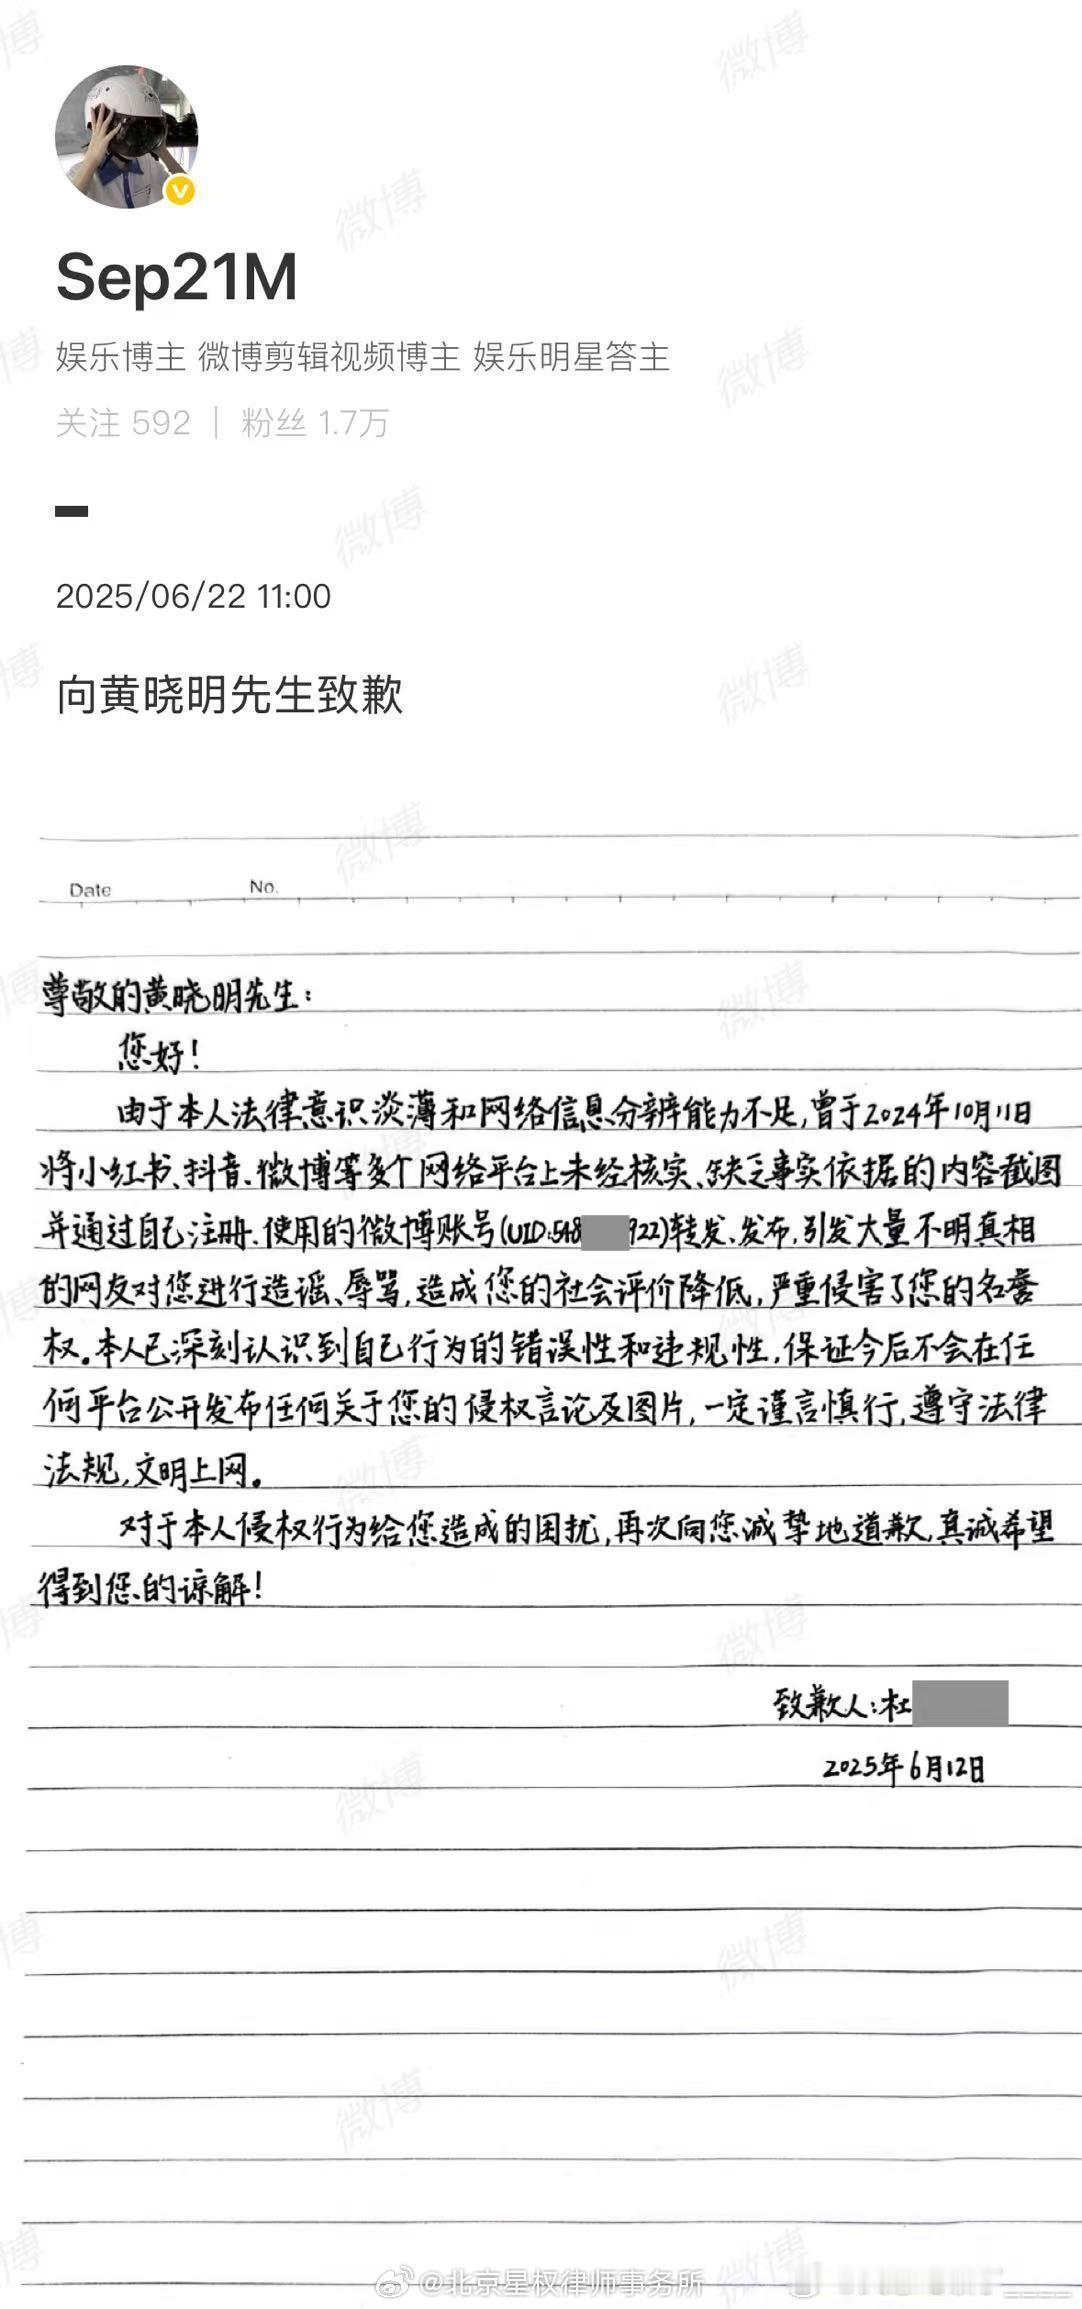 Sep21M
娱乐博主 微博剪辑视频博主 娱乐明星答主
关注 592 | 粉丝 1.7万
2025/06/22 11:00
向黄晓明先生致歉
Date No.
尊敬的黄晓明先生：
您好！
由于本人法律意识淡薄和网络信息分辨能力不足，曾于2024年10月11日
将小红书、抖音、微博等多个网络平台上未经核实、缺乏事实依据的内容截图
并通过自己注册、使用的微博账号(UID:548 922)转发、发布，引发大量不明真相
的网友对您进行造谣、辱骂，造成您的社会评价降低，严重侵害了您的名誉
权。本人已深刻认识到自己行为的错误性和违规性，保证今后不会在任
何平台公开发布任何关于您的侵权言论及图片，一定谨言慎行，遵守法律
法规，文明上网。
对于本人侵权行为给您造成的困扰，再次向您诚挚地道歉，真诚希望
得到您的谅解！
致歉人：杜
2025年6月12日
@北京星权律师事务所
微博